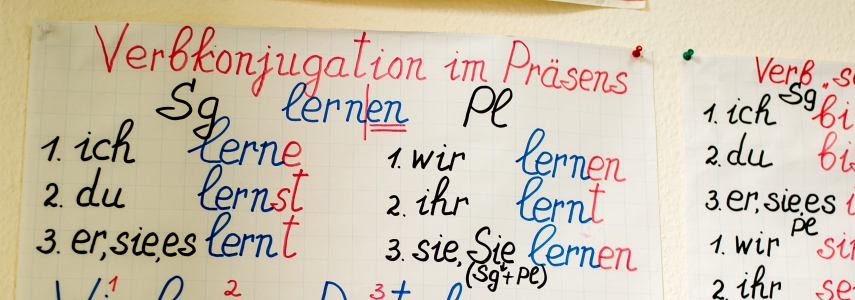 Verbkonjugation im Präsens
Sg lernen Pl
1. ich lerne
2. du lernst
3. er, sie, es lernt
1. wir lernen
2. ihr lernt
3. sie, Sie lernen
(Sg + Pl)
1 2 3
Verb
Sg
1. ich bi
2. du bi
3. er, sie, es
Pl
1. wir
2. ihr